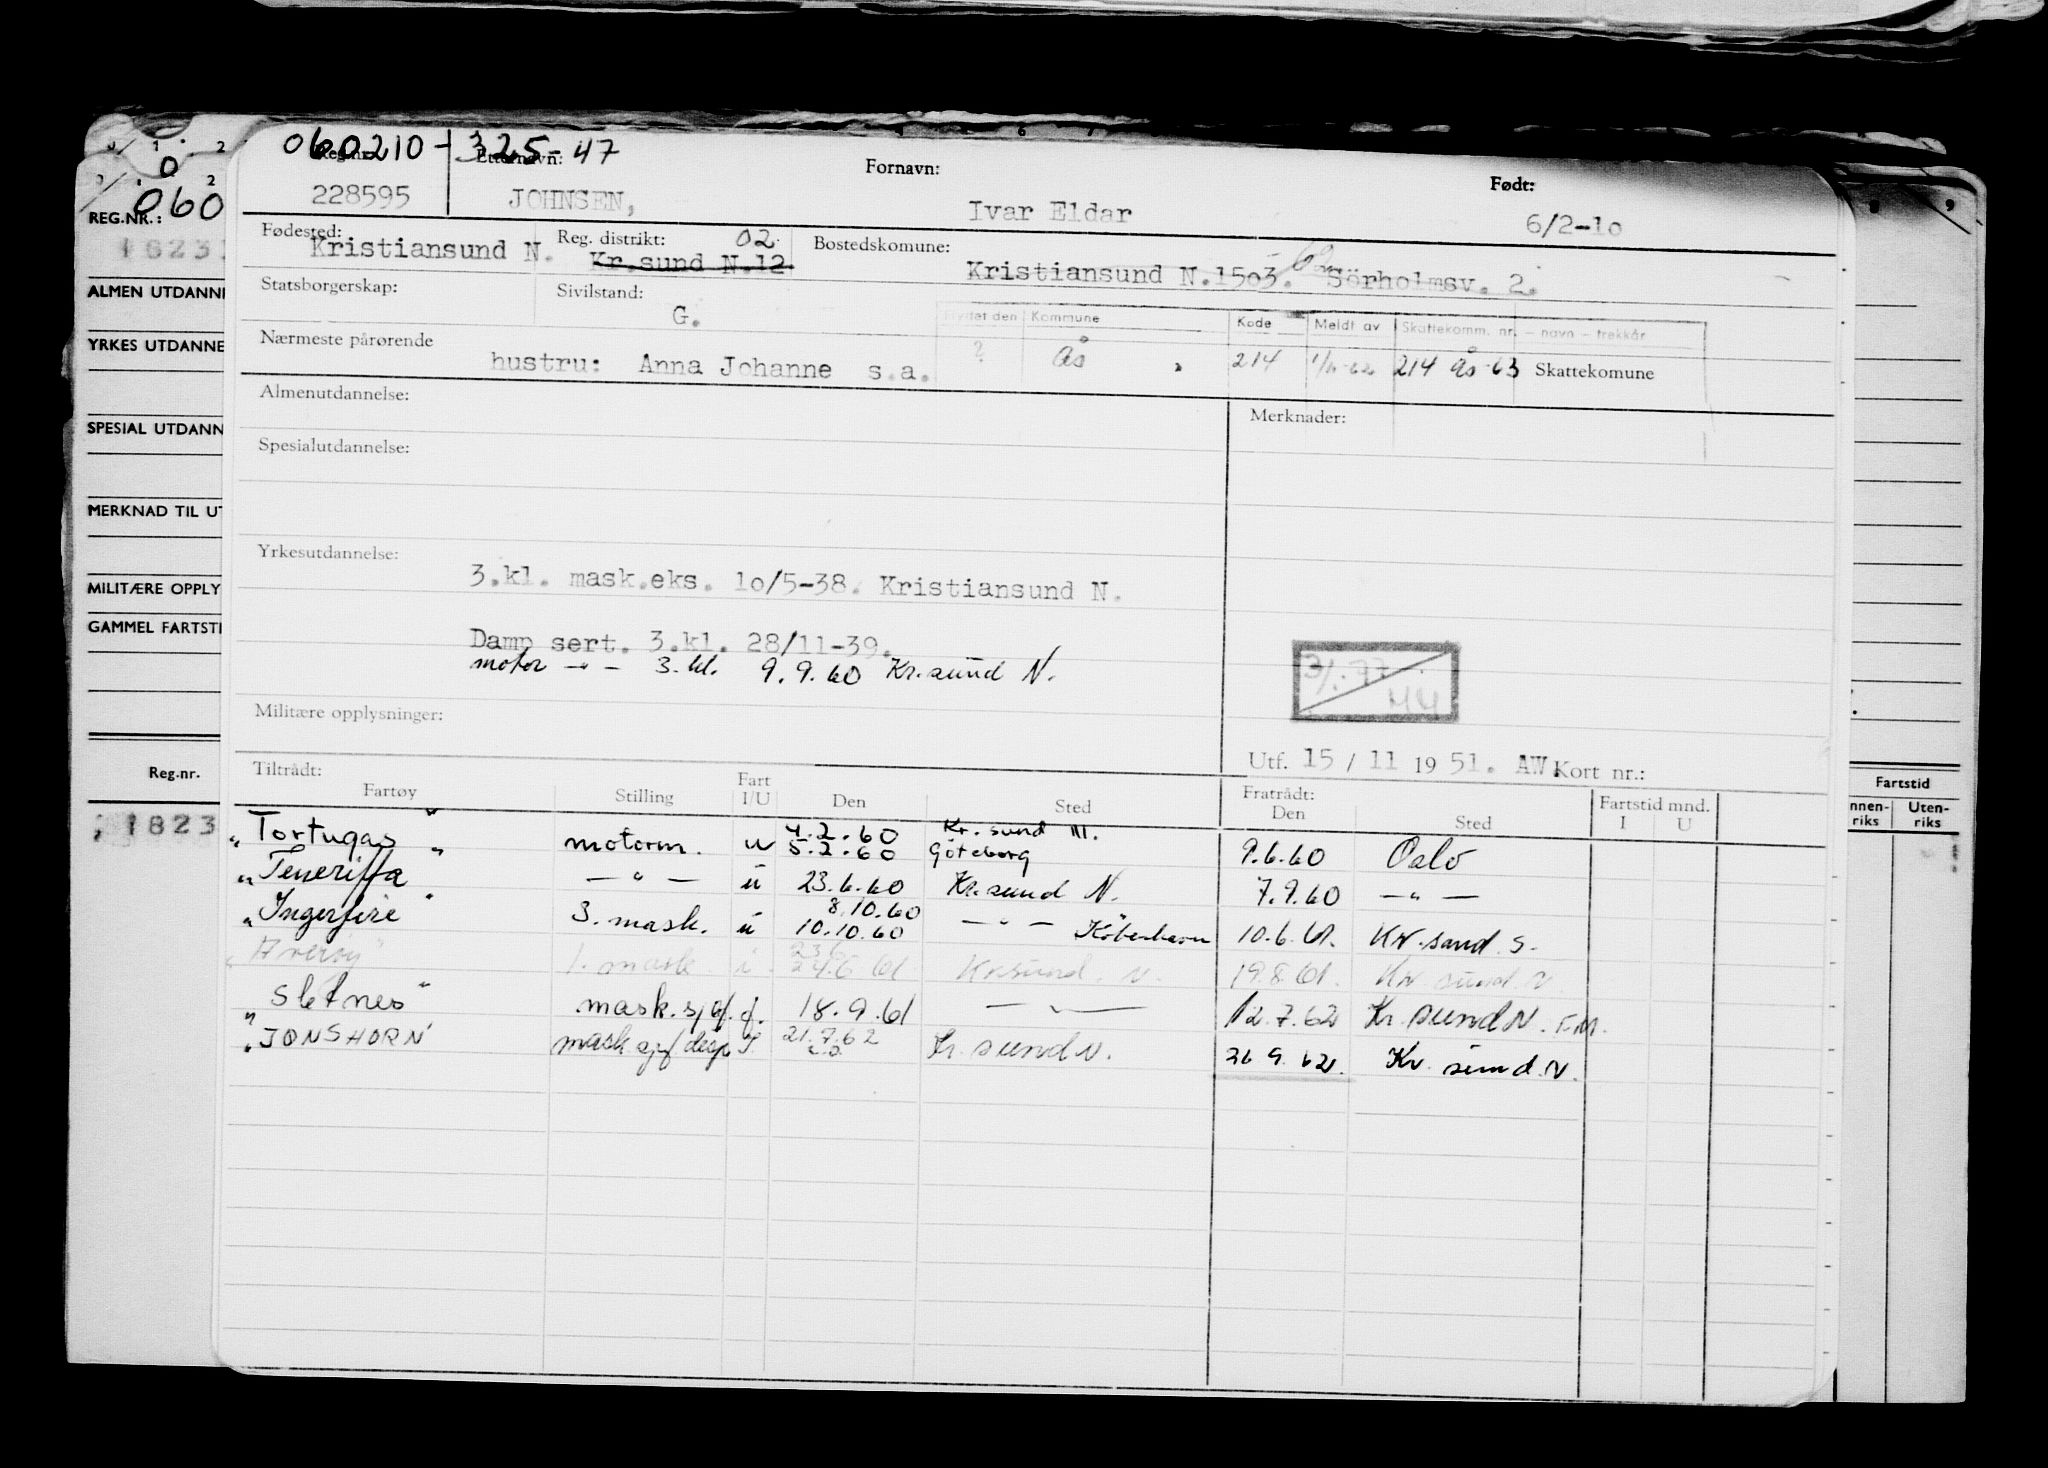 060210-325-47
Reg.nr. Etternavn: Fornavn: Født:
228595 JOHNSEN, Ivar Eldar 6/2-10
Fødested: Reg. distrikt: 02 Bostedskomune:
Kristiansund N. Kr.sund N.12. Kristiansund N.1503. Sörholmsv. 2.
Statsborgerskap: Sivilstand:
G.
Flyttet den Kommune Kode Meldt av Skattekomm. nr. – navn – trekkår
? Ås 214 214 Ås 63 Skattekomune
Nærmeste pårørende
hustru: Anna Johanne s.a.
Almenutdannelse: Merknader:
Spesialutdannelse:
Yrkesutdannelse:
3.kl. mask.eks. 10/5-38. Kristiansund N.
Damp sert. 3.kl. 28/11-39.
motor -"- 3.kl. 9.9.60 Kr.sund N.
Militære opplysninger:
Utf. 15 / 11 19 51. AW. Kort nr.:
Tiltrådt: Fratrådt:
Fartøy Stilling Fart I/U Den Sted Den Sted Fartstid mnd. I U
4.2.60 Kr.sund
"Tortugas" motorm. u 5.2.60 Göteborg 9.6.60 Oslo
"Teneriffa" -"- u 23.6.60 Kr.sund N. 7.9.60 -"-
8.10.60
"Ingerfire" 3. mask. u 10.10.60 -"- København 10.6.61. Kr.sand.S.
23.6
"Averøy" 1. mask. i 24.6.61 Kr.sund. N. 19.8.61. Kr.sund.N
"Sletnes" mask. 18.9.61 -"- 12.7.62 Kr.sund N.
"JONSHORN" mask 21.7.62 Kr.sund N. 26.9.62. Kr.sund.N.
REG.NR.: 060
1823
ALMEN UTDANNE
YRKES UTDANNE
SPESIAL UTDANN
MERKNAD TIL UT
MILITÆRE OPPLY
GAMMEL FARTSTI
Reg.nr.
1823
Fartstid
nnen-riks Uten-riks